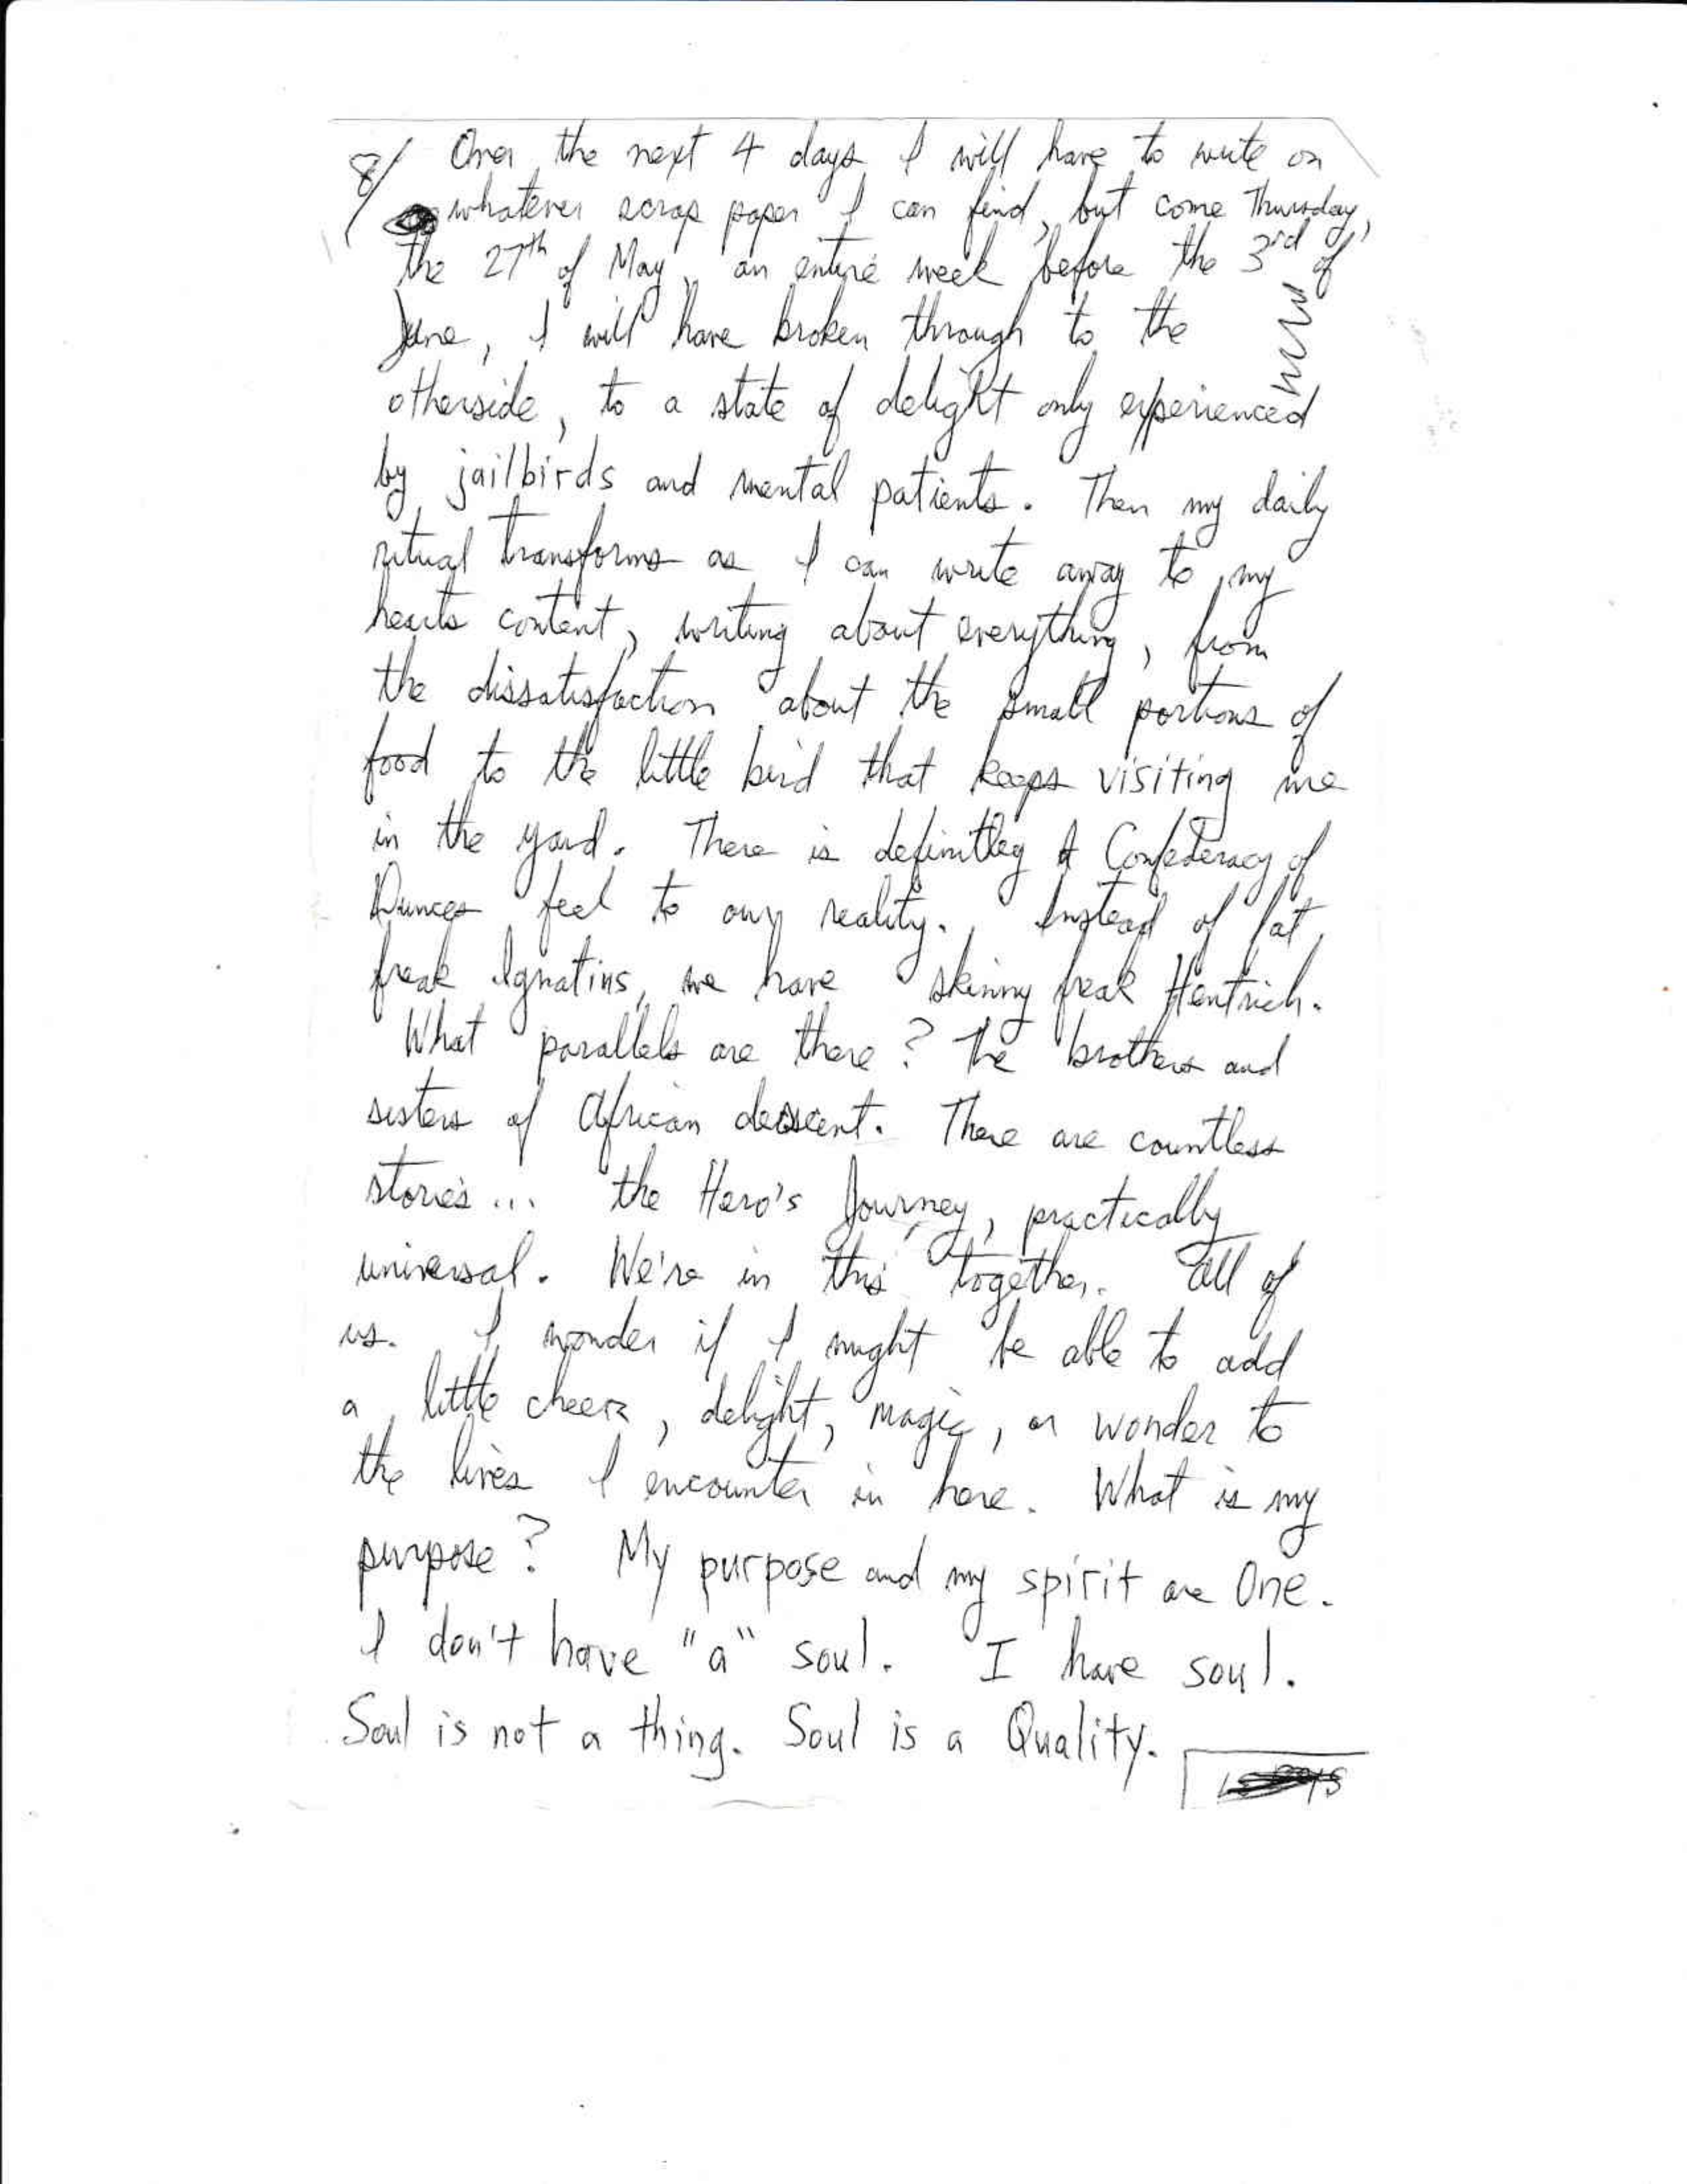 8/ Over the next 4 days I will have to write on
whatever scrap paper I can find, but come Thursday,
the 27th of May, an entire week before the 3rd of
June, I will have broken through to the
otherside, to a state of delight only experienced
by jailbirds and mental patients. Then my daily
ritual transforms as I can write away to my
hearts content, writing about everything, from
the dissatisfaction about the small portions of
food to the little bird that keeps visiting me
in the yard. There is definitley A Confederacy of
Dunces feel to our reality. Instead of fat
freak Ignatius, we have skinny freak Hentrich.
What parallels are there? The brothers and
sisters of African descent. There are countless
stories... the Hero's Journey, practically
universal. We're in this together. All of
us. I wonder if I might be able to add
a little cheer, delight, magic, or wonder to
the lives I encounter in here. What is my
purpose? My purpose and my spirit are One.
I don't have "a" soul. I have soul.
Soul is not a thing. Soul is a Quality.